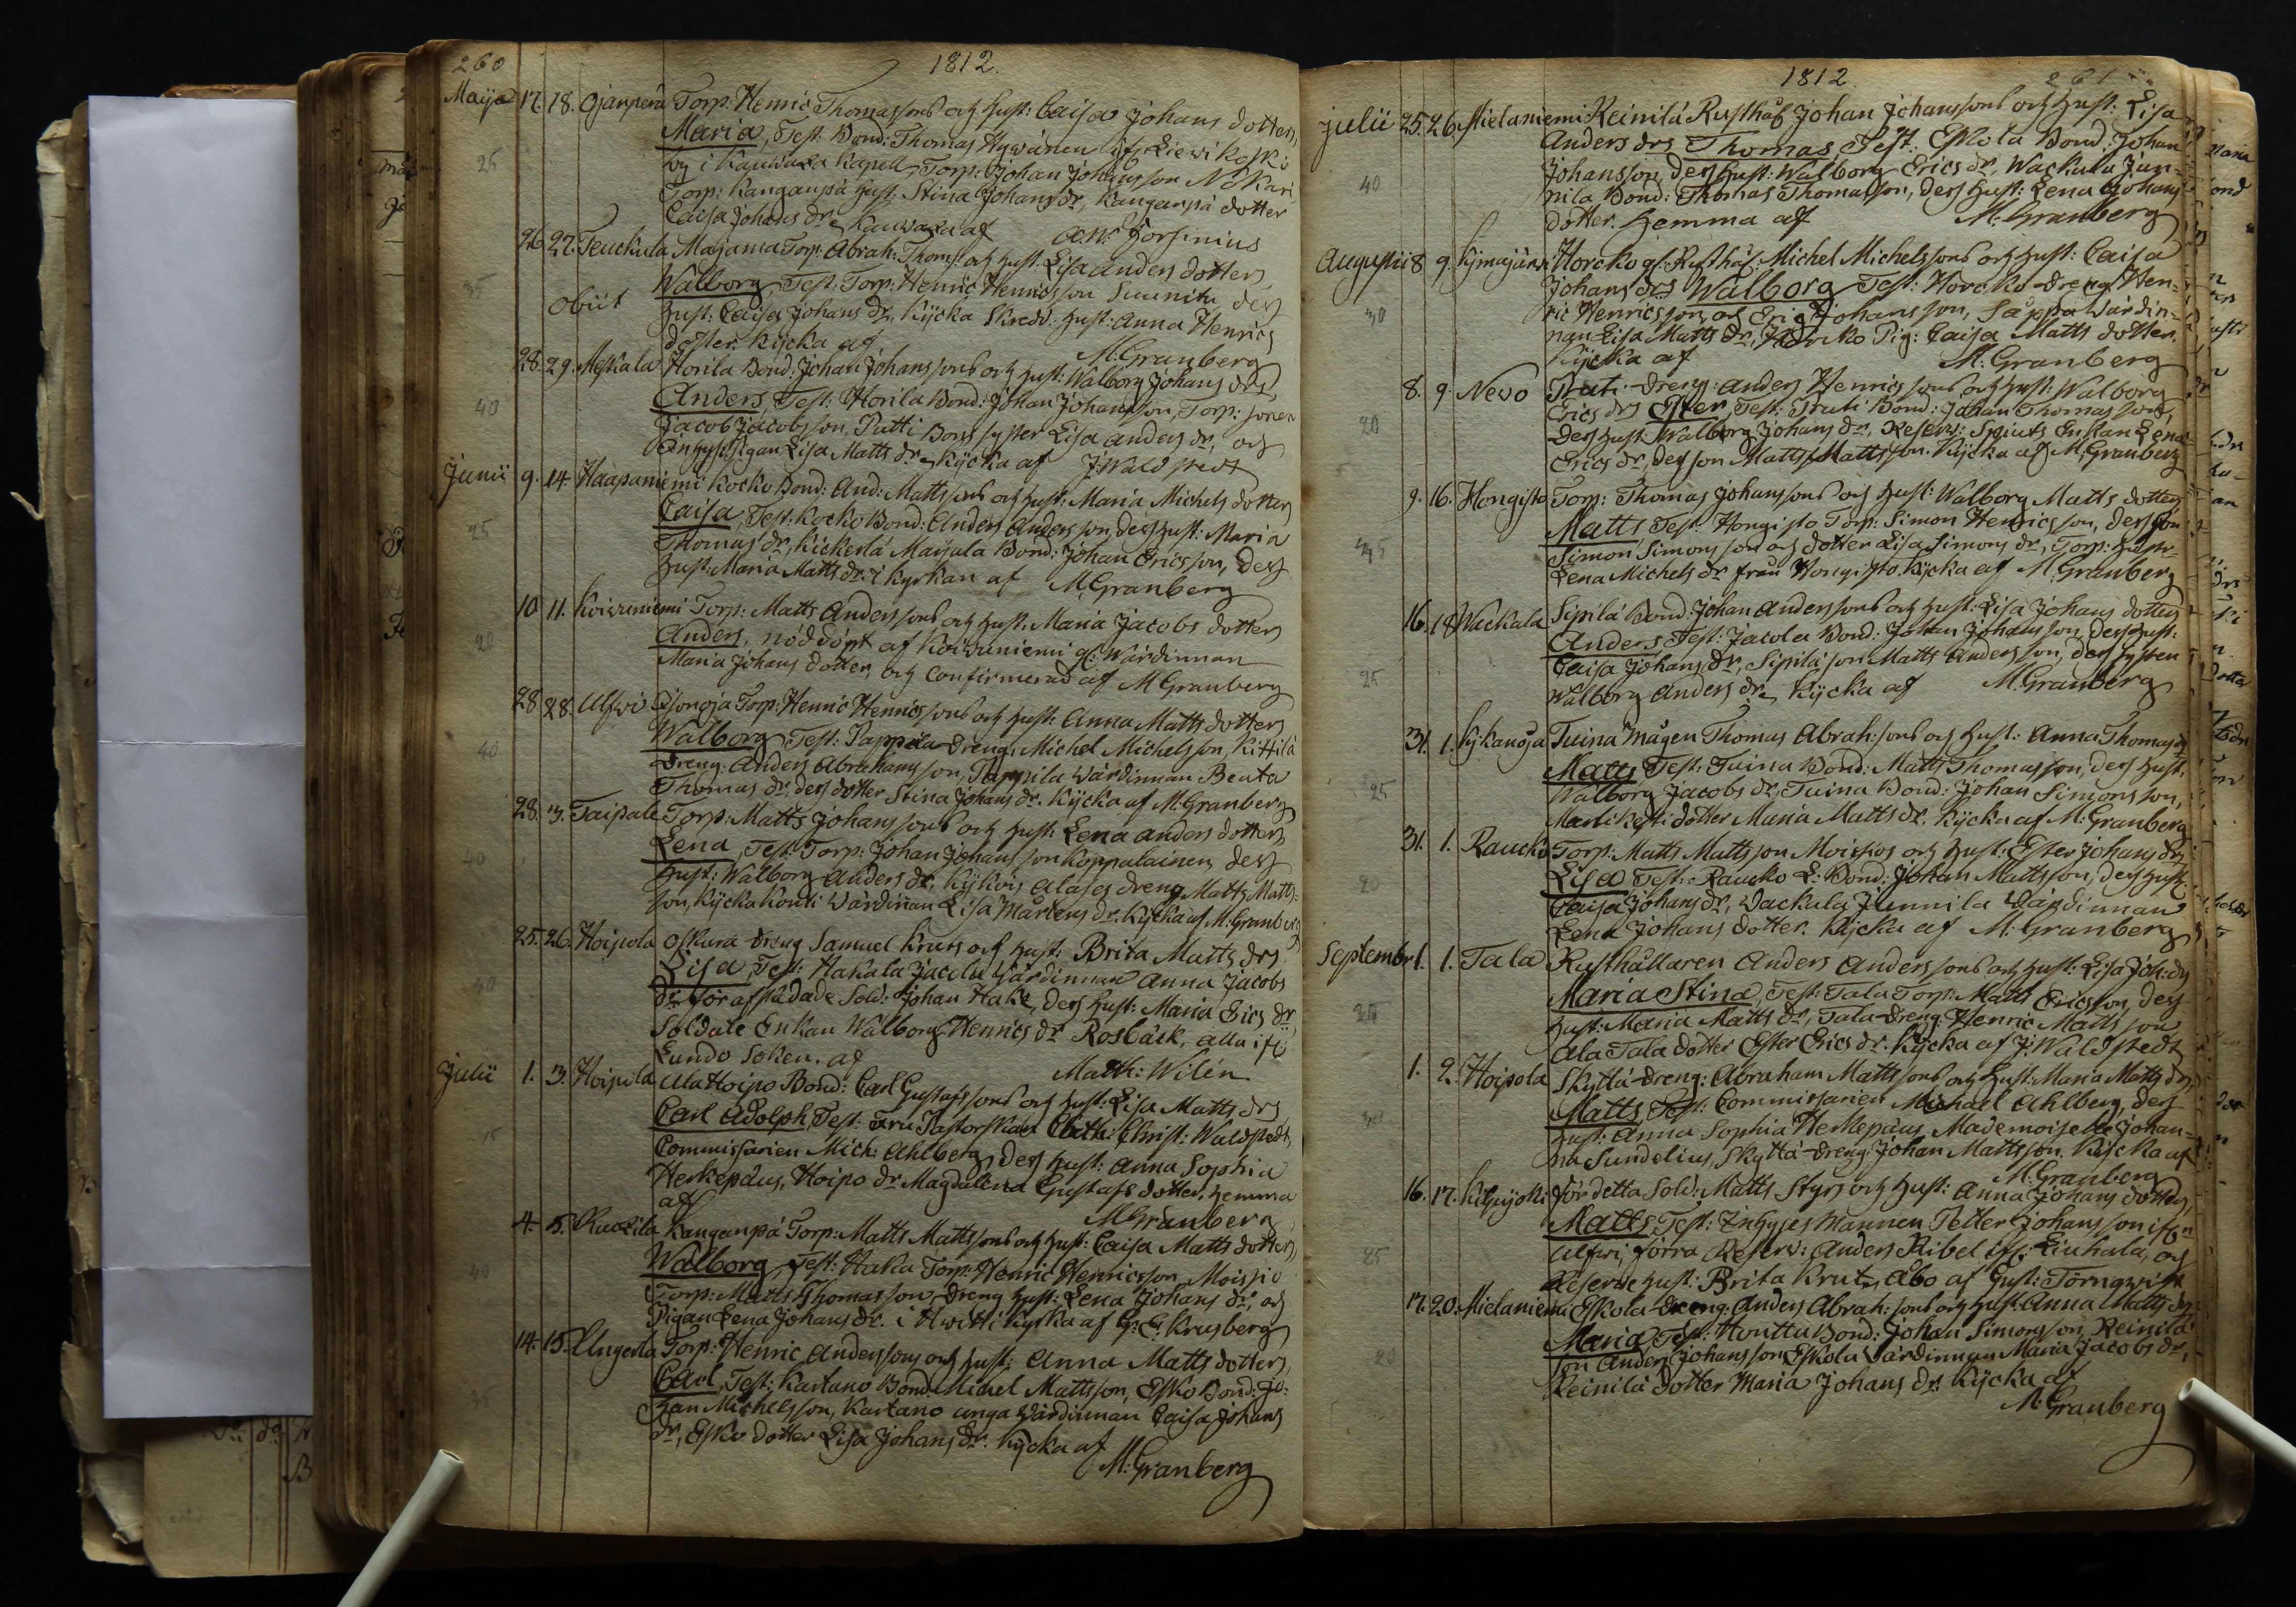 260
1812.
Maije 17. 18. Ojanperä Torp: Henric Thomassons och hust: Caisa Johans dotters
25 Maria, Test: Bond: Thomas Hywänen ifr. Liewikoski
by i Kauwaxa Kapell, Torp: Johan Johansson Nokari
Torp: Kanganpä hust: Stina Johans dr, Kanganpä dotter
Caisa Johans dr Kauwaxa af A.W. Forsinius
26. 27. Teuckula Majamaa Torp: Abrah: Thoms: och hust: Lisa Anders dotters
35 Walborg, Test: Torp: Henric Henricsson Suunitu, des
Obiit hust: Caisa Johans dr, Kijcka Skredd: hust: Anna Henrics
dotter. Kijcka af M. Granberg
28. 29. Meskala Horila Bond: Johan Johanssons och hust: Walborg Johans drs
40 Anders, Test: Horila Bond: Johan Johansson, Torp: sonen
Jacob Jacobsson, Putti Bons syster Lisa Anders dr, och
Inhyses pigan Lisa Matts dr. Kijcka af J: Waldstedt
Junii 9. 14. Haapaniemi Kocko Bond: And: Mattssons och hust: Maria Michels dotters
25 Caisa, Test: Kocko Bond: Anders Andersson, des hust: Maria
Thomas dr, Kickerlä Maijala Bond: Johan Ericsson, des
hust: Maria Matts dr. i kyrkan af M. Granberg
10. 11. Koiwuniemi Torp: Matts Anderssons och hust: Maria Jacobs dotters
20 Anders, nöddöpt af Koiwuniemi gl: Wärdinnan
Maria Johans dotter, och Confirmerad af M Granberg
28. 28. Ulfwi Torp: Henric Henricssons och hust: Anna Matts dotters
40 Walborg, Test: Pappila dreng: Michel Michelsson, Kittilä
dreng: Anders Abrahamsson, Pappila Wärdinnan Beata
Thomas dr, des dotter Stina Johans dr. Kijcka af M. Granberg
28. 3. Taipale Torp: Matts Johanssons och hust: Lena Anders dotters
40 Lena, Test: Torp: Johan Johansson Koppalainen, des
hust: Walborg Anders dr, Kijkois Alases dreng Matts Matts-
son, Kijcka Konti Wärdinnan Lisa Mårtens dr. Kijcka af M. Granberg
25. 26. Hoipola Oskura dreng Samuel Kruts och hust: Brita Matts drs
40 Lisa, Test: Hakala Jacola Wärdinnan Anna Jacobs
dr, för afskedade Sold: Johan Hake, des hust: Maria Erics dr
Soldate Enkan Walborg Henrics dr Rosbäck, alla ifr
Lundo Soken. af Matth: Wilén
Julii 1. 3. Hoipola Ala Hoipo Bond: Carl Gustafssons och hust: Lisa Matts drs
15 Carl Adolph, Test: Fru Pastorskan Cath: Christ: Waldstedt,
Commissarien Mich: Ahlberg, des hust: Anna Sophia
Herkepæus, Hoipo dr Magdalena Gustafs dotter, hemma
af M Granberg
4. 5. Raoxila Kanganpä Torp: Matts Mattssons och hust: Caisa Matts dotters
40 Walborg, Test: Haka Torp: Henric Henricsson, Moissio
Torp: Matts Thomasson, dreng hust: Lena Johans dr, och
Pigan Lena Johans dr. i Hwitti kyrka af G: E: Krusberg
14. 15. Ungerla Torp: Henric Anderssons och hust: Anna Matts dotters
Carl, Test: Kartano Bond: Michel Mattsson, Esko Bond: Jo-
han Michelsson, Kartano unga Wärdinnan Caisa Johans
dr, Esko dotter Lisa Johans dr. Kijcka af
M: Granberg
1812
261
Julii 25. 26. Mielaniemi Reinilä Rusthåf Johan Johanssons och hust: Lisa
Anders drs Thomas Test: Eskola Bond: Johan
40 Johansson, des hust: Walborg Erics dr, Wackala Jun-
nila Bond: Thomas Thomasson, des hust: Lena Johans
dotter. hemma af M: Granberg
Augustii 8. 9. Kijmajärvi Horcko gl: Rusthåf: Michel Michelssons och hust: Caisa
Johans drs Walborg Test: Horcko dreng: Hen-
30 ric Henricsson, och Eric Johansson, Säppä Wärdin-
nan Lisa Matts dr, Horcko Pig: Caisa Matts dotter.
Kijcka af M: Granberg
8. 9. Nevo Pruti dreng: Anders Henricssons och hust: Walborg
20 Erics drs Ester, Test: Pruti Bond: Johan Thomasson,
des hust: Walborg Johans dr, Reserv: Spiuts Enkan Lena
Erics dr, des son Matts Mattsson. Kijcka af M: Granberg
9. 16. Hongisto Torp: Thomas Johanssons och hust: Walborg Matts dotters
Matts, Test: Hongisto Torp: Simon Henricsson, des son
45 Simon Simonsson och dotter Lisa Simons dr, Torp: hustr:
Lena Michels dr från Hongisto. Kijcka af M. Granberg
16. 18. Wackala Sipilä Bond: Johan Anderssons och hust: Lisa Johans dotters
Anders, Test: Jacola Bond: Johan Johansson, des hust:
25 Caisa Johans dr, Sipilä son Matts Andersson, des syster
Walborg Anders dr. Kijcka af M. Granberg
31. 1. Kijkanoja Tuina Mågen Thomas Abrah:sons och hust: Anna Thomas dr
25 Matts, Test: Tuina Bond: Matts Thomasson, des hust:
Walborg Jacobs dr, Tuina Bond: Johan Simonsson,
dotter Maria Matts dr. Kijcka af M: Granberg
31. 1. Raucko Torp: Matts Mattsson Moissios och hust: Ester Johans drs
20 Lisa, Test: Raucko L: Bond: Johan Mattsson, des hust:
Caisa Johans dr, Wackala Junnila Wärdinnan
Lena Johans dotter. Kijcka af M: Granberg
Septembr 1. 1. Tala Rusthållaren Anders Anderssons och hust: Lisa Joh: drs
25 Maria Stina, Test: Tala Torp: Matts Ericsson, des
hust: Maria Matts dr, Tala dreng: Henric Mattsson
Ala Tala dotter Ester Erics dr. Kijcka af J: Waldstedt
1. 2. Hoipola Skyttä dreng: Abraham Mattssons och hust: Maria Matts drs
30 Matts, Test: Commissarien Michael Ahlberg, des
hust: Anna Sophia Herkepæus, Mademoiselle Johan-
na Sundelius, Skyttä dreng: Johan Mattsson. Kijcka af
M. Granberg
16. 17. Kilpijoki för detta Sold: Matts Styrs och hust: Anna Johans dotters
Matts, Test: Inhyses Mannen Petter Johansson ifrn
25 Ulfwi, förra Reserv: Anders Ribel ifr. Liuhala, och
Reserve hust: Brita Krut, Åbo af Gust: Törnqwist
17. 20. Mielaniemi Eskola dreng: Anders Abrah:sons och hust: Anna Matts drs
20 Maria, Test: Houttu Bond: Johan Simonsson, Reinilä
son Anders Johansson, Eskola Wärdinnan Maria Jacobs dr,
Reinilä dotter Maria Johans dr. Kijcka af
M. Granberg